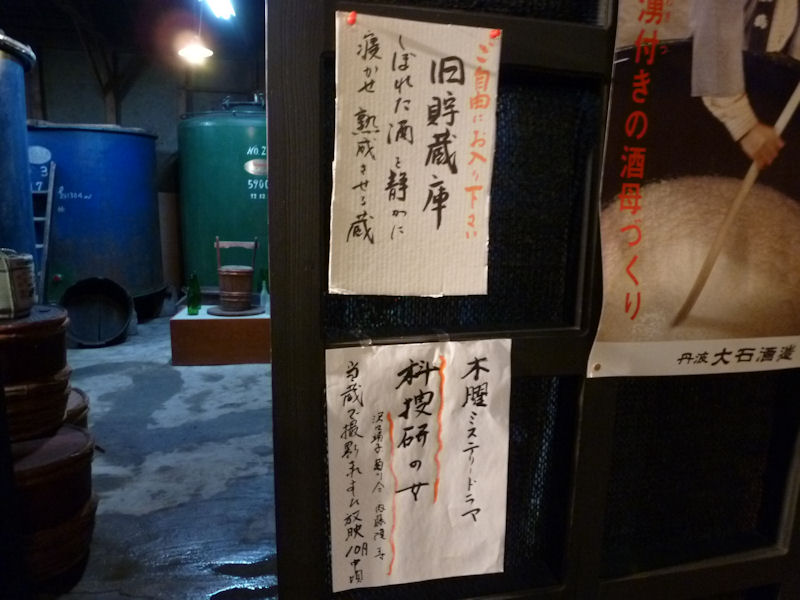 ご自由にお入り下さい
旧貯蔵庫
しぼれた酒を静かに
寝かせ 熟成させる蔵
木曜ミステリードラマ
科捜研の女
沢口靖子 内藤
当蔵で撮影
放映10月中頃
湧付きの酒母づくり
丹波 大石酒造
NO. 2